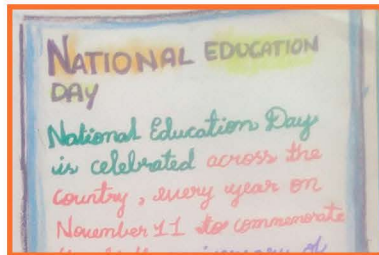 NATIONAL EDUCATION
DAY
National Education Day
is celebrated across the
country, every year on
November 11 to commemorate